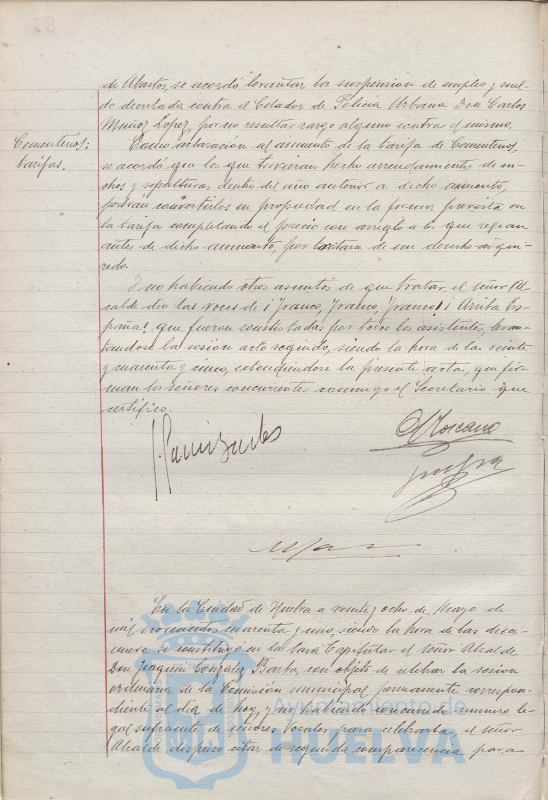 de Abastos, se acordó levantar la suspensión de empleo y suel-
do decretada contra el Celador de Policía Urbana Don Carlos
Muñoz López, por no resultar cargo alguno contra el mismo.
Cementerios;
tarifas.
Como aclaración al aumento de la tarifa de Cementerios,
se acordó que los que tuvieran hecho arrendamiento de ni-
chos y sepulturas dentro del año anterior a dicho aumento,
podrán convertirlos en propiedad en la forma prevista en
la tarifa completando el precio con arreglo a los que regían
antes de dicho aumento, por tratarse de un derecho adqui-
rido.
Y no habiendo otros asuntos de que tratar, el señor Al
calde dió las voces de ¡Franco, Franco, Franco! ¡Arriba Es-
paña! que fueron contestadas por todos los asistentes, levan-
tándose la sesión acto seguido, siendo la hora de las veinte
y cuarenta y cinco, extendiéndose la presente acta, que fir-
man los señores concurrentes conmigo el Secretario que
certifico.
En la Ciudad de Huelva a veinte y ocho de Mayo de
mil novecientos cuarenta y uno, siendo la hora de las diez
nueve se constituyó en la Sala Capitular el señor Alcalde
Don Joaquín González Barba, con objeto de celebrar la sesión
ordinaria de la Comisión municipal permanente correspon-
diente al día de hoy, y no habiendo concurrido número le-
gal suficiente de señores Vocales para celebrarla, el señor
Alcalde dispuso citar de segunda comparecencia para
Ayuntamiento de
HUELVA